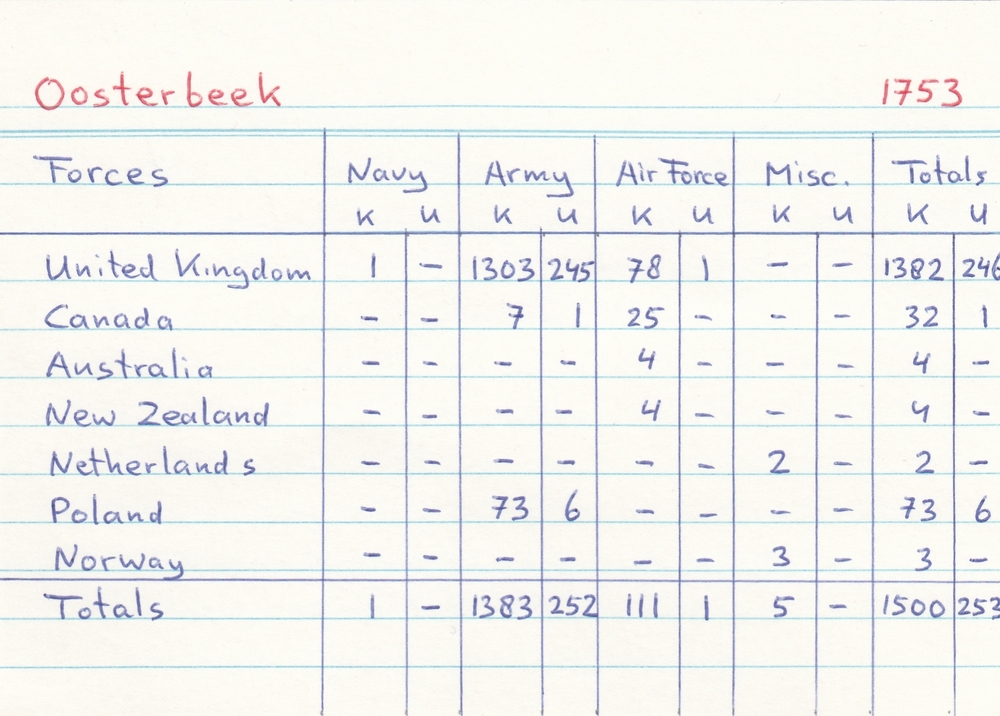 Oosterbeek 1753
Forces Navy Army Air Force Misc. Totals
K U K U K U K U K U
United Kingdom 1 – 1303 245 78 1 – – 1382 246
Canada – – 7 1 25 – – – 32 1
Australia – – – – 4 – – – 4 –
New Zealand – – – – 4 – – – 4 –
Netherlands – – – – – – 2 – 2 –
Poland – – 73 6 – – – – 73 6
Norway – – – – – – 3 – 3 –
Totals 1 – 1383 252 111 1 5 – 1500 253